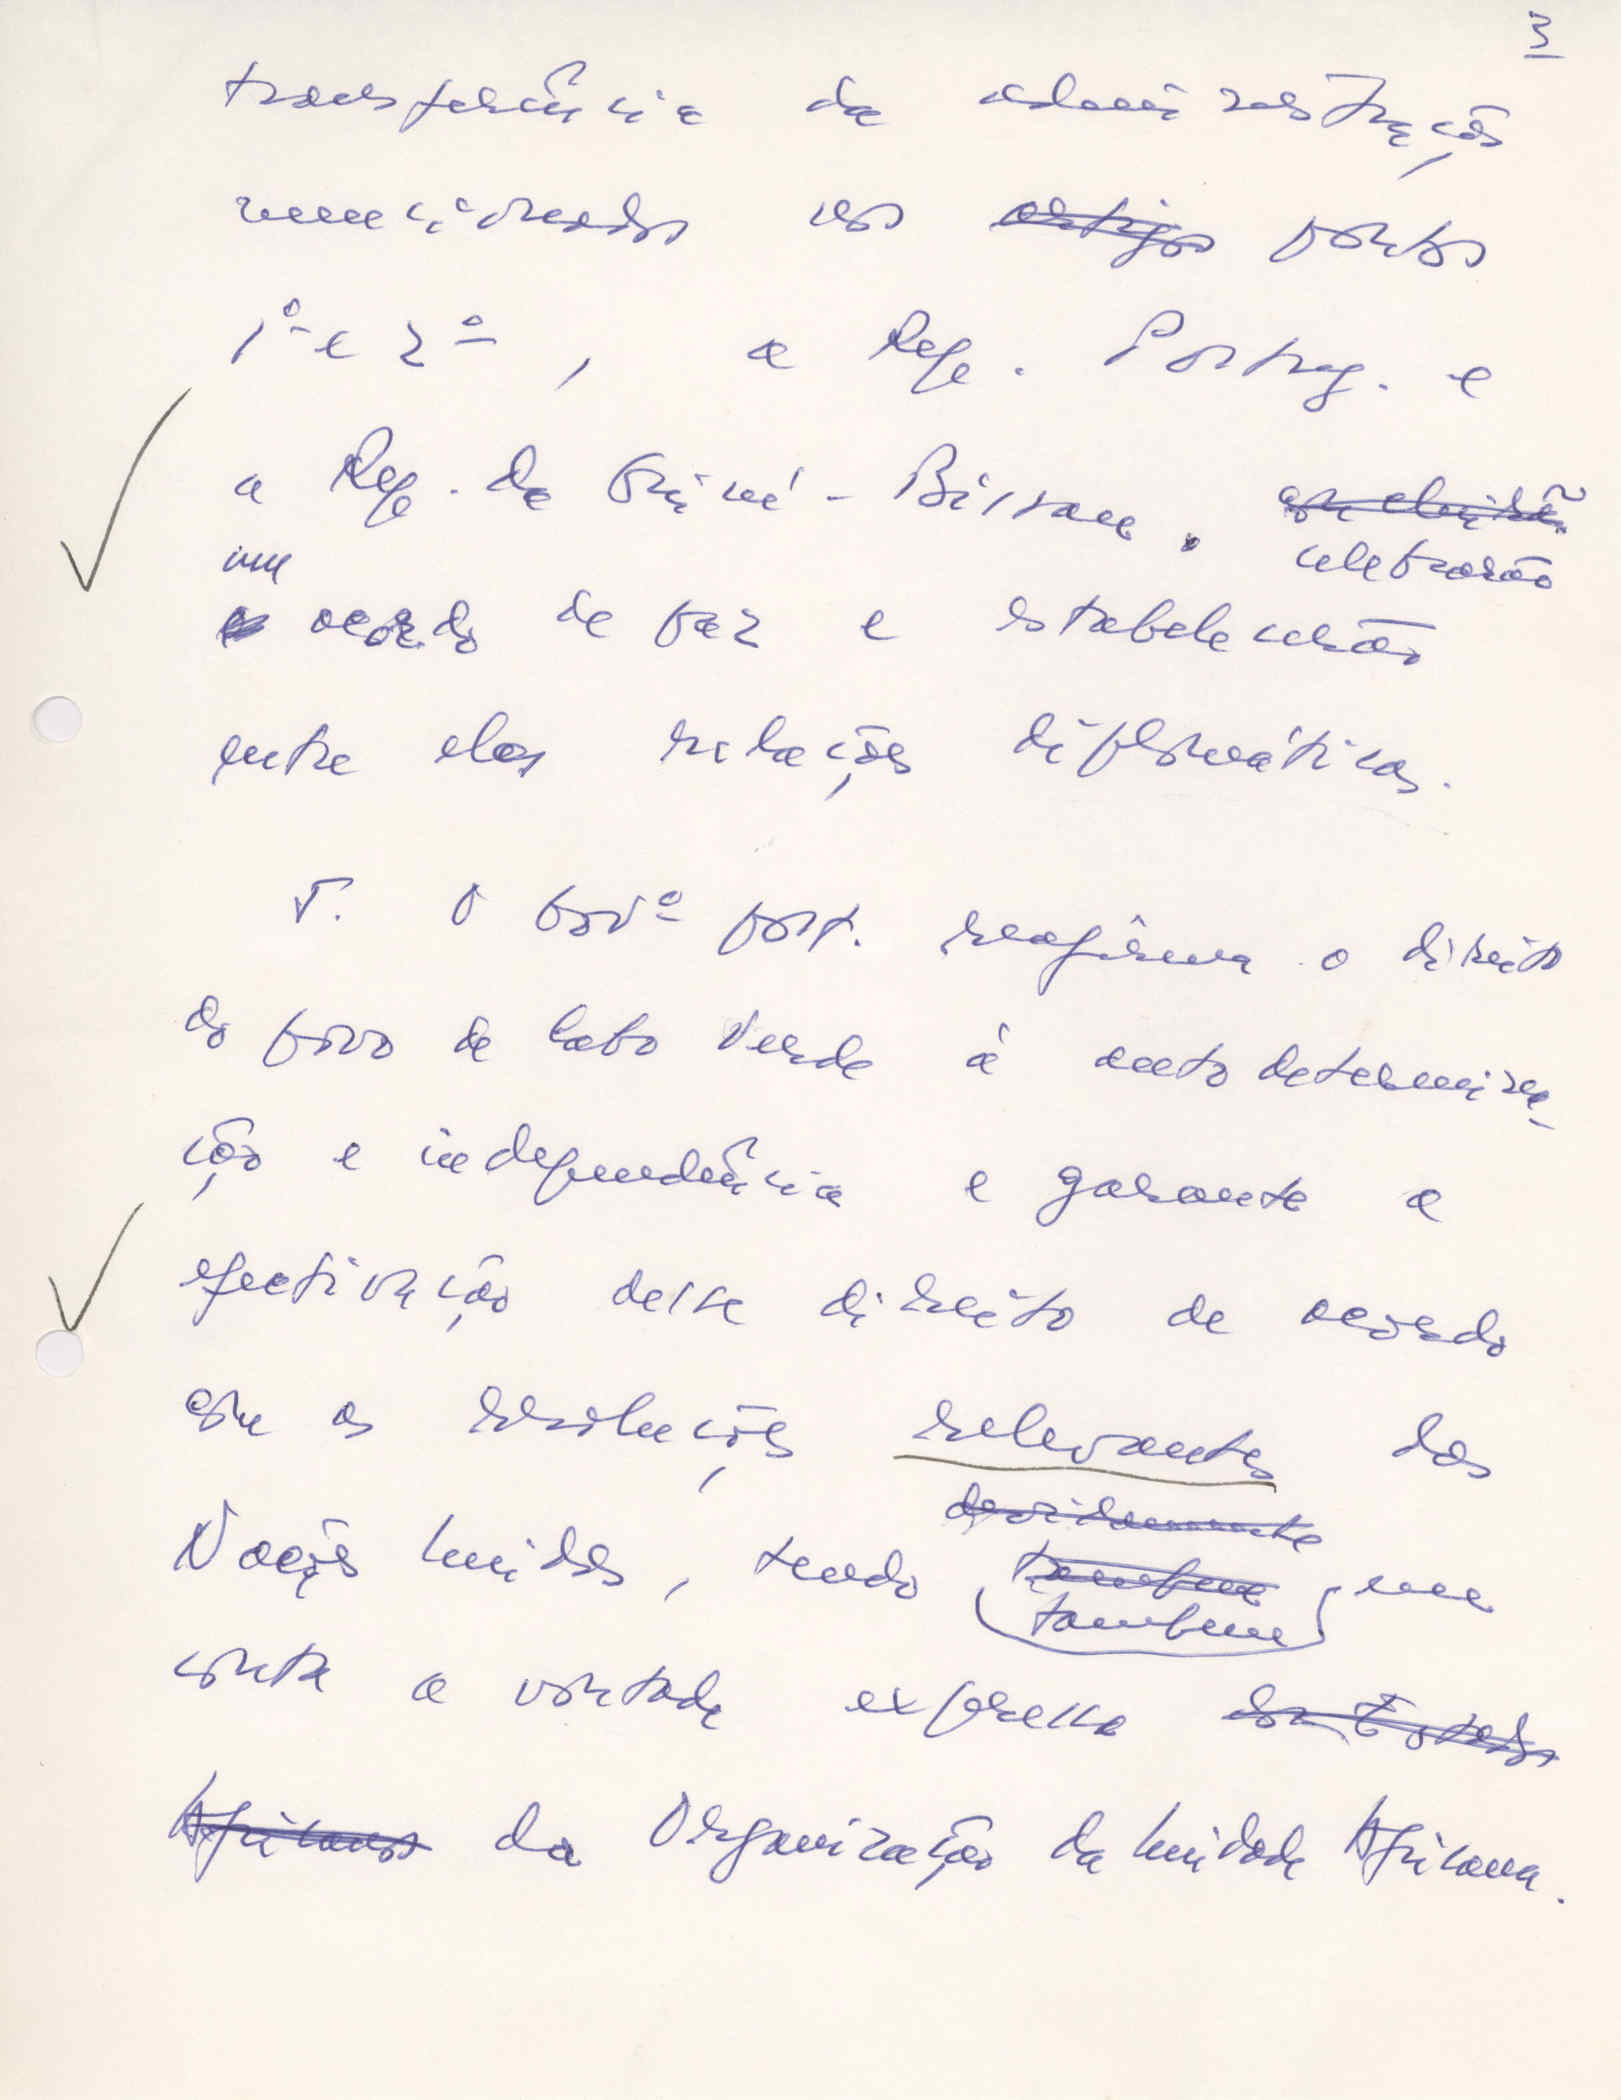 3
transferência da administração
mencionados nos artigos pontos
1º e 2º, a Rep. Portug. e
a Rep. da Guiné-Bissau. concluirão
celebrarão
um
acordo de paz e estabelecerão
entre elas relações diplomáticas.
V. O Govº port. reafirma o direito
do povo de Cabo Verde à autodetermina-
ção e independência e garante a
efectivação desse direito de acordo
com as resoluções relevantes das
devidamente
Nações Unidas, tendo também em
também
conta a vontade expressa dos Estados
Africanos da Organização da Unidade Africana.